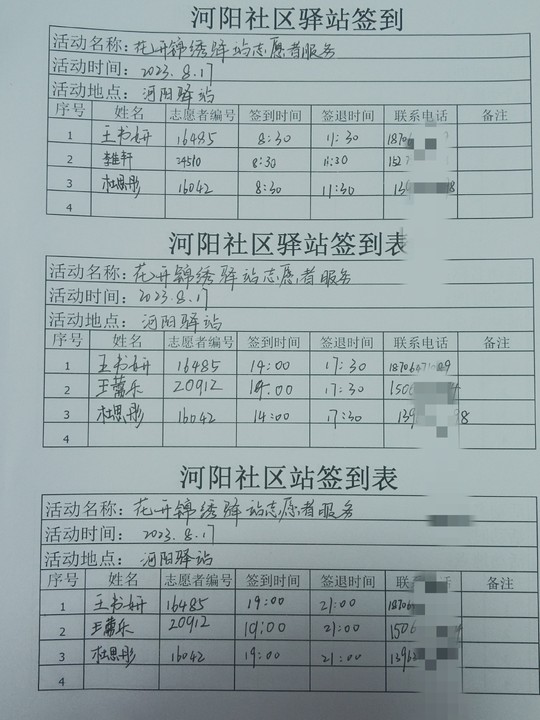 河阳社区驿站签到
活动名称：花开锦绣驿站志愿者服务
活动时间：2023.8.17
活动地点：河阳驿站
序号 姓名 志愿者编号 签到时间 签退时间 联系电话 备注
1 王书妍 16485 8:30 11:30
2 李维轩 24510 8:30 11:30
3 杜思彤 16042 8:30 11:30
4
河阳社区驿站签到表
活动名称：花开锦绣驿站志愿者服务
活动时间：2023.8.17
活动地点：河阳驿站
序号 姓名 志愿者编号 签到时间 签退时间 联系电话 备注
1 王书妍 16485 14:00 17:30
2 王 乐 20912 14:00 17:30
3 杜思彤 16042 14:00 17:30
4
河阳社区站签到表
活动名称：花开锦绣驿站志愿者服务
活动时间：2023.8.17
活动地点：河阳驿站
序号 姓名 志愿者编号 签到时间 签退时间 联 电话 备注
1 王书妍 16485 19:00 21:00
2 王 乐 20912 19:00 21:00
3 杜思彤 16042 19:00 21:00
4